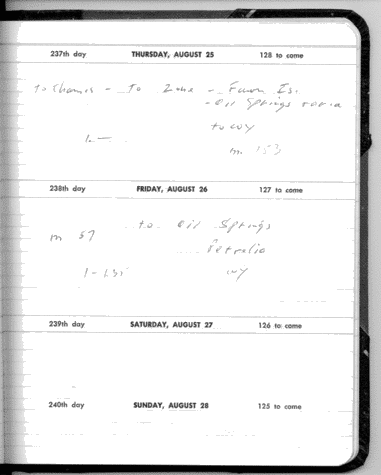 237th day THURSDAY, AUGUST 25 128 to come
To - To Zone - Fawn Is.
- Oil Springs
to wy
1 -
m 153
238th day FRIDAY, AUGUST 26 127 to come
to Oil Springs
m 57
Petrolia
1 - wy
239th day SATURDAY, AUGUST 27 126 to come
240th day SUNDAY, AUGUST 28 125 to come